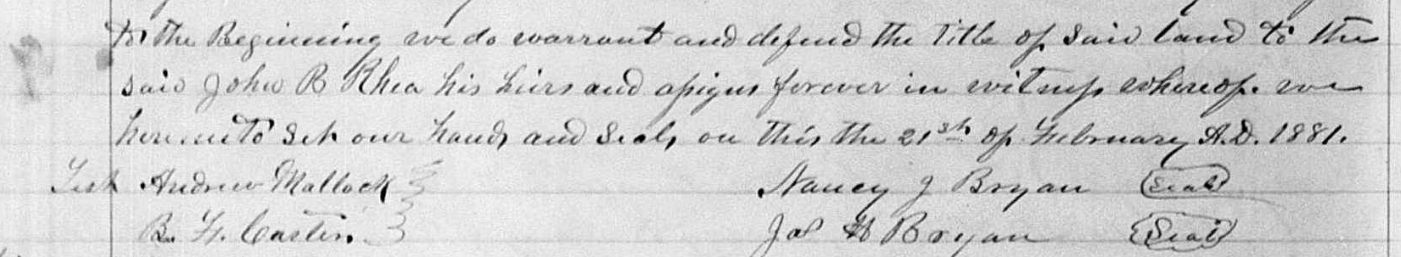 to the Beginning we do warrant and defend the Title of Said land to the
said John B Rhea his heirs and assigns forever in witness whereof. we
hereunto Set our hands and Seals on this the 21st of February A.D. 1881.
Test Andrew Mallock Nancy J Bryan (Seal)
B. F. Carter. Jas H Bryan (Seal)